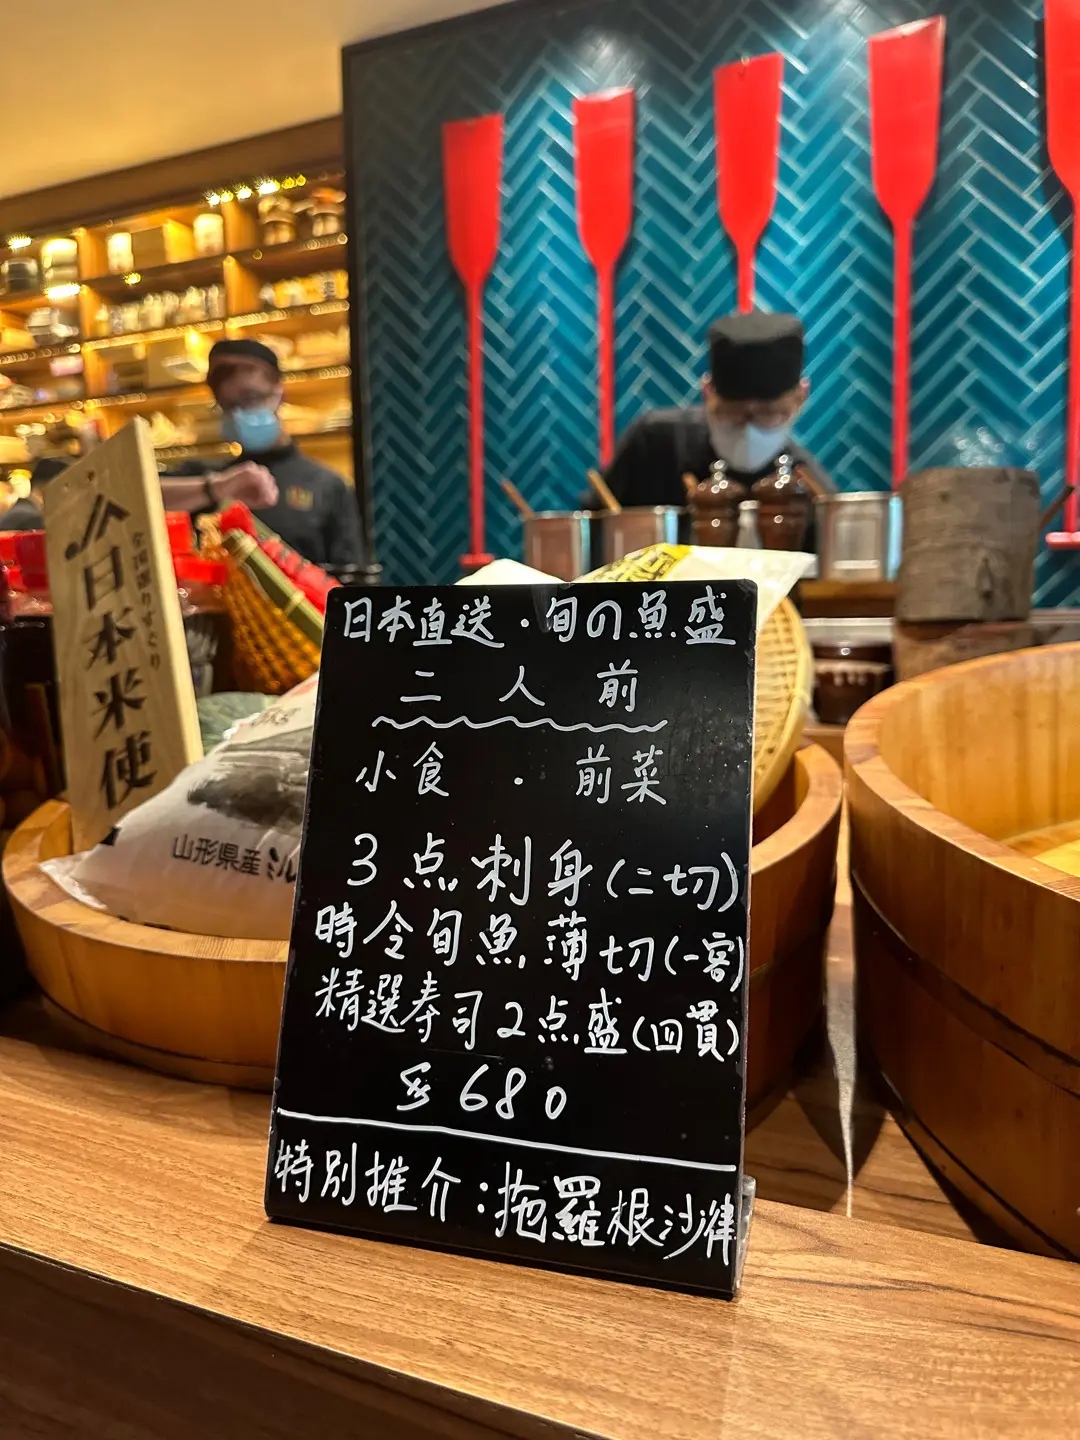 日本直送・旬の魚盛
二 人 前
小食 · 前菜
3 点 刺 身 (二切)
時令旬魚薄切(一客)
精選寿司2点盛(四貫)
$ 680
特別推介：拖羅根沙律
日本米使
山形県産